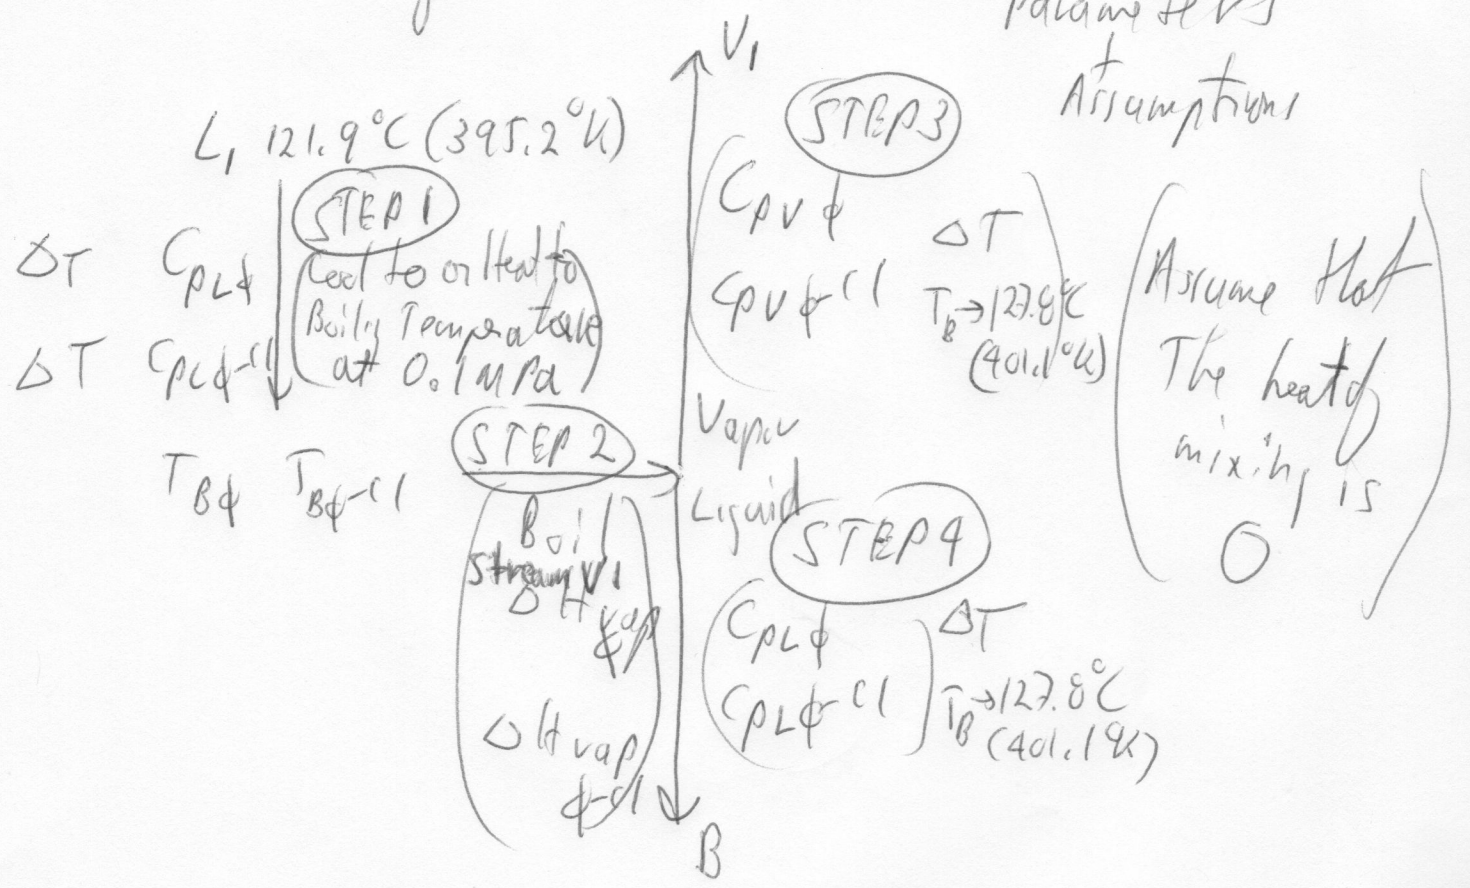 Parameters
+
Assumptions
L1 121.9°C (395.2°K)
STEP 1
ΔT CpLϕ
ΔT CpLϕ-Cl
(Cool to or Heat to
Boiling Temperature
at 0.1 MPa)
TBϕ TBϕ-Cl
STEP 2
Boil
Stream V1
ΔHvap
ϕ
ΔHvap
ϕ-Cl
V1
STEP 3
CpVϕ ΔT
CpVϕ-Cl TB→127.8°C
(401.1°K)
Vapor
Liquid
STEP 4
CpLϕ ΔT
CpLϕ-Cl TB→127.8°C
(401.1°K)
B
(Assume that
The heat of
mixing is
0)